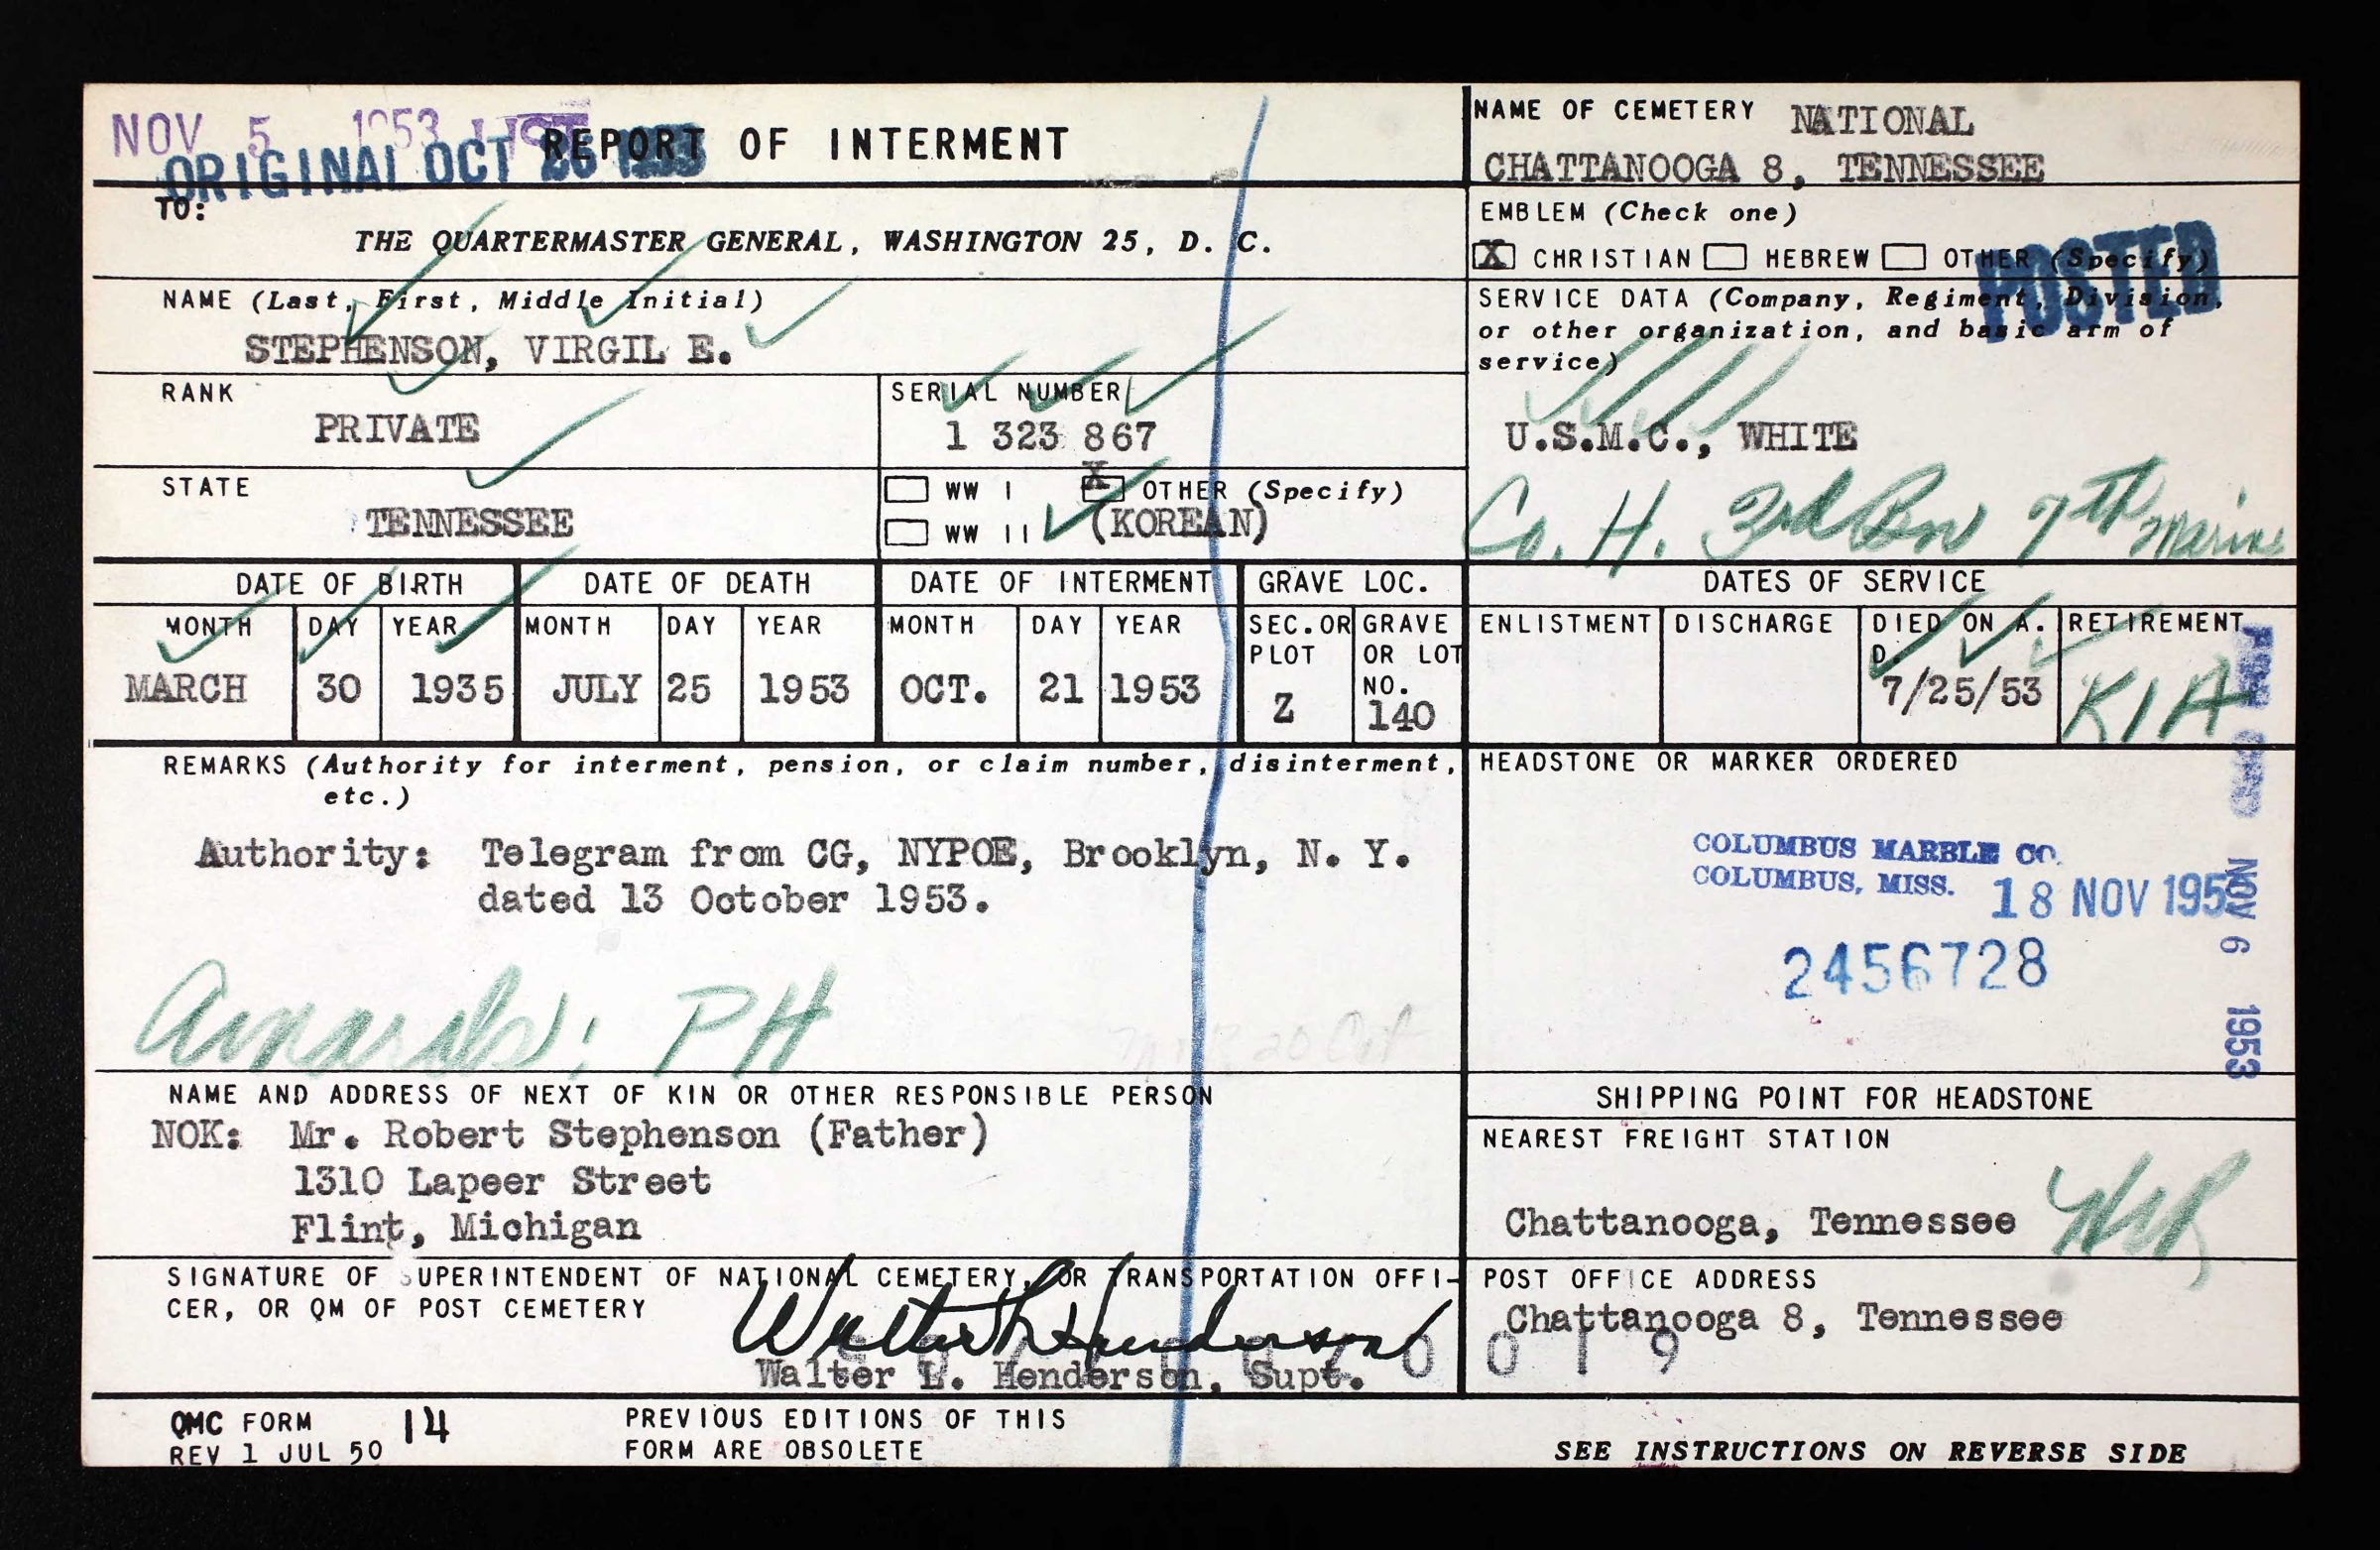 NOV 5 1953
ORIGINAL OCT 26 1953
REPORT OF INTERMENT
TO:
THE QUARTERMASTER GENERAL, WASHINGTON 25, D. C.
NAME (Last, First, Middle Initial)
STEPHENSON, VIRGIL E.
RANK
PRIVATE
SERIAL NUMBER
1 323 867
STATE
TENNESSEE
WW I
X OTHER (Specify)
WW II
(KOREAN)
NAME OF CEMETERY NATIONAL
CHATTANOOGA 8, TENNESSEE
EMBLEM (Check one)
X CHRISTIAN HEBREW OTHER (Specify)
POSTED
SERVICE DATA (Company, Regiment, Division,
or other organization, and basic arm of
service)
U.S.M.C., WHITE
Co. H. 3rd Bn 7th Marine
DATE OF BIRTH DATE OF DEATH DATE OF INTERMENT GRAVE LOC. DATES OF SERVICE
MONTH DAY YEAR MONTH DAY YEAR MONTH DAY YEAR
SEC.OR PLOT
GRAVE OR LOT NO.
ENLISTMENT DISCHARGE DIED ON A. D. RETIREMENT
MARCH 30 1935 JULY 25 1953 OCT. 21 1953 Z 140 7/25/53 KIA
REMARKS (Authority for interment, pension, or claim number, disinterment,
etc.)
Authority: Telegram from CG, NYPOE, Brooklyn, N. Y.
dated 13 October 1953.
Awards: PH
HEADSTONE OR MARKER ORDERED
COLUMBUS MARBLE CO.
COLUMBUS, MISS.
18 NOV 195
2456728
NOV 6 1953
NAME AND ADDRESS OF NEXT OF KIN OR OTHER RESPONSIBLE PERSON
NOK: Mr. Robert Stephenson (Father)
1310 Lapeer Street
Flint, Michigan
SHIPPING POINT FOR HEADSTONE
NEAREST FREIGHT STATION
Chattanooga, Tennessee
SIGNATURE OF SUPERINTENDENT OF NATIONAL CEMETERY, OR TRANSPORTATION OFFI-
CER, OR QM OF POST CEMETERY
Walter L Henderson
Walter L. Henderson, Supt.
POST OFFICE ADDRESS
Chattanooga 8, Tennessee
0 0 1 9
QMC FORM 14
REV 1 JUL 50
PREVIOUS EDITIONS OF THIS
FORM ARE OBSOLETE
SEE INSTRUCTIONS ON REVERSE SIDE